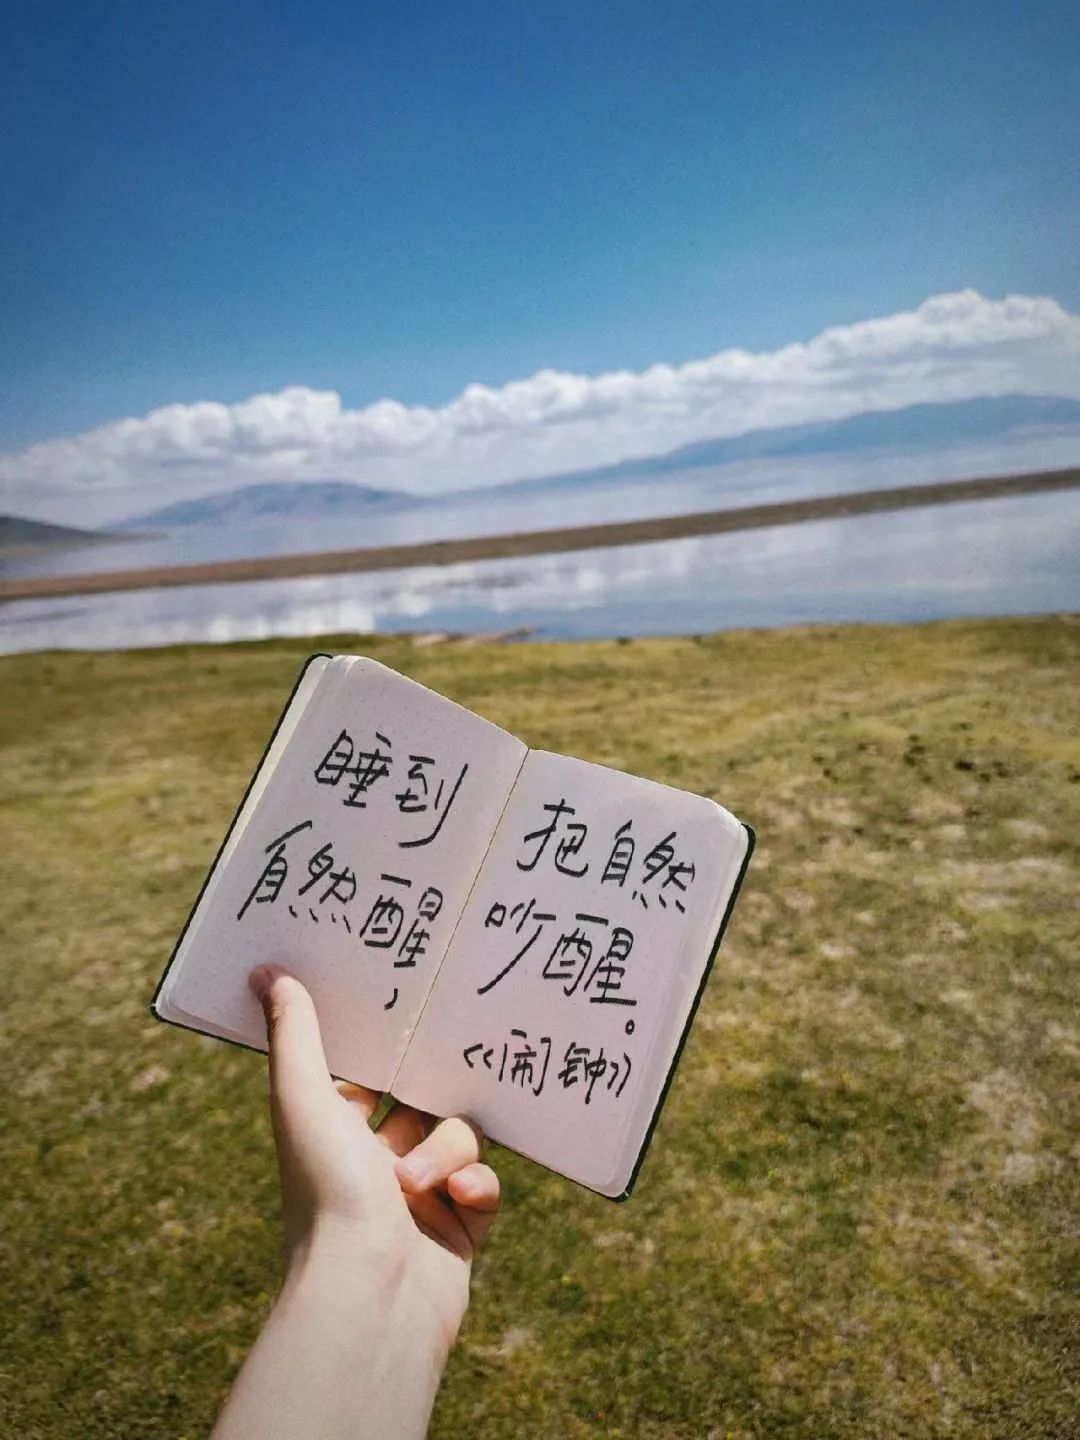 睡到
自然醒,
把自然
吵醒。
《闹钟》